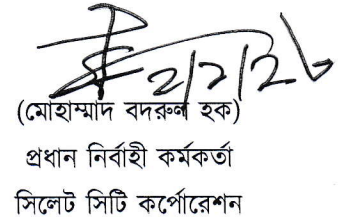 ২/২/২৬
(মোহাম্মাদ বদরুল হক)
প্রধান নির্বাহী কর্মকর্তা
সিলেট সিটি কর্পোরেশন